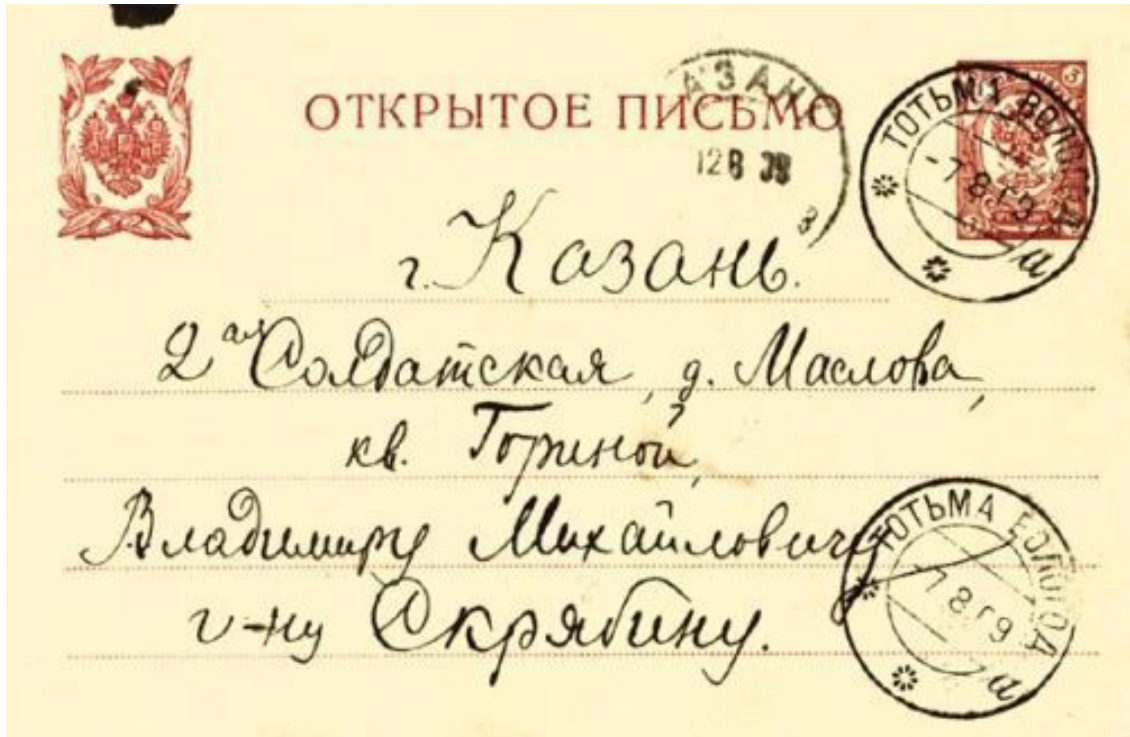 ОТКРЫТОЕ ПИСЬМО
КАЗАНЬ
12 8 09
3
ТОТЬМА ВОЛОГОД
-7 8 09
а
г. Казань.
2ая Солдатская, д. Маслова,
кв. Гориной,
Владимиру Михайловичу
г-ну Скрябину.
ТОТЬМА ВОЛОГОД
-7 8 09
а